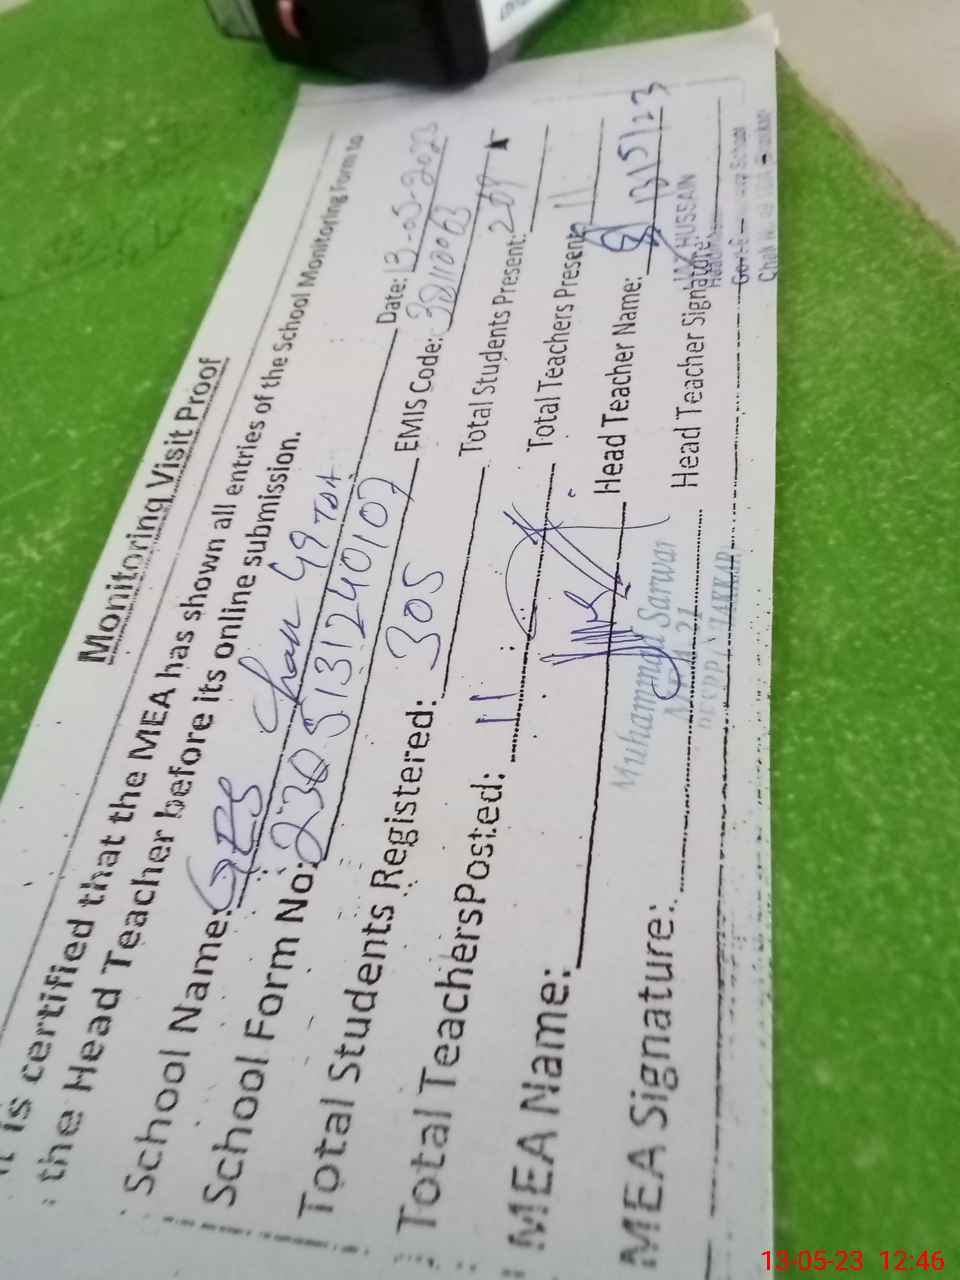 Monitoring Visit Proof
It is certified that the MEA has shown all entries of the School Monitoring Form to
the Head Teacher before its online submission.
School Name: GES Chak 49 TDA Date: 13-05-2023
School Form No: 230513124010 EMIS Code:
Total Students Registered: 305 Total Students Present:
Total TeachersPosted: 11 Total Teachers Present: 11
MEA Name: Head Teacher Name: 13/5/23
MEA Signature: Muhammad Sarwar Head Teacher Signature: HUSSAIN
School
13-05-23 12:46